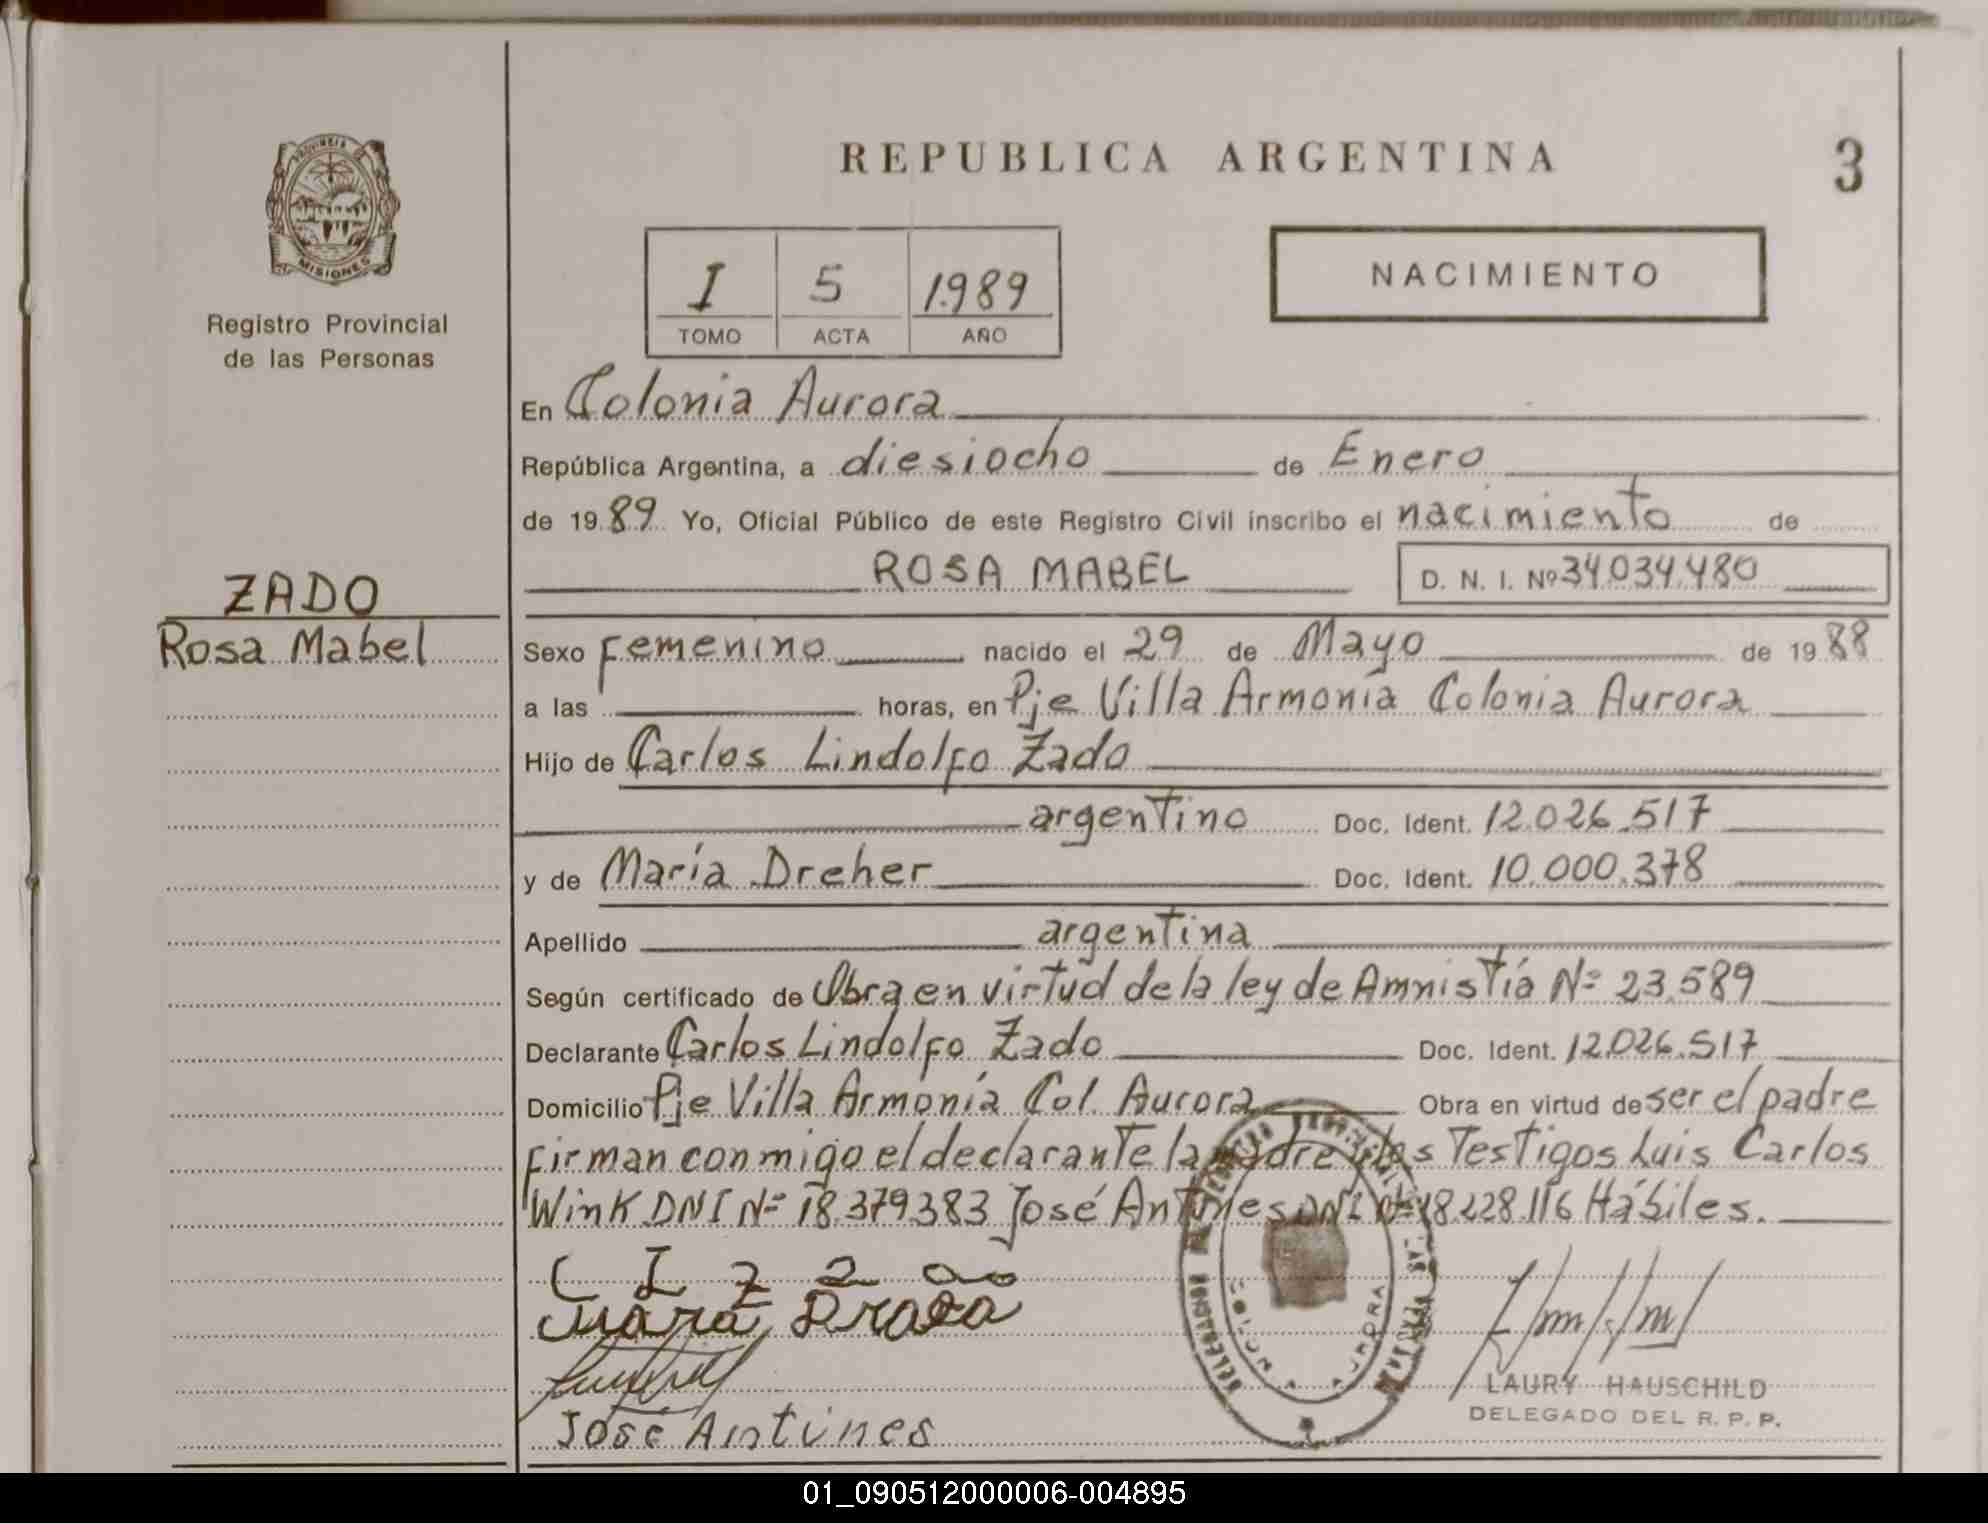 REPUBLICA ARGENTINA
3
PROVINCIA DE
MISIONES
Registro Provincial
de las Personas
I 5 1.989
TOMO ACTA AÑO
NACIMIENTO
En Colonia Aurora
República Argentina, a diesiocho de Enero
de 1989 Yo, Oficial Público de este Registro Civil inscribo el nacimiento de
ROSA MABEL D. N. I. Nº 34.034.480
ZADO
Rosa Mabel
Sexo Femenino nacido el 29 de Mayo de 1988
a las horas, en Pje Villa Armonía Colonia Aurora
Hijo de Carlos Lindolfo Zado
argentino Doc. Ident. 12.026.517
y de María Dreher Doc. Ident. 10.000.378
Apellido argentina
Según certificado de Obra en virtud de la ley de Amnistía Nº 23.589
Declarante Carlos Lindolfo Zado Doc. Ident. 12.026.517
Domicilio Pje Villa Armonía Col. Aurora Obra en virtud de ser el padre
firman conmigo el declarante la madre los Testigos Luis Carlos
Wink DNI Nº 18.379.383 José Antunes DNI Nº 18.228.116 Hábiles.
José Antunes
COLONIA AURORA
LAURY HAUSCHILD
DELEGADO DEL R. P. P.
01_090512000006-004895